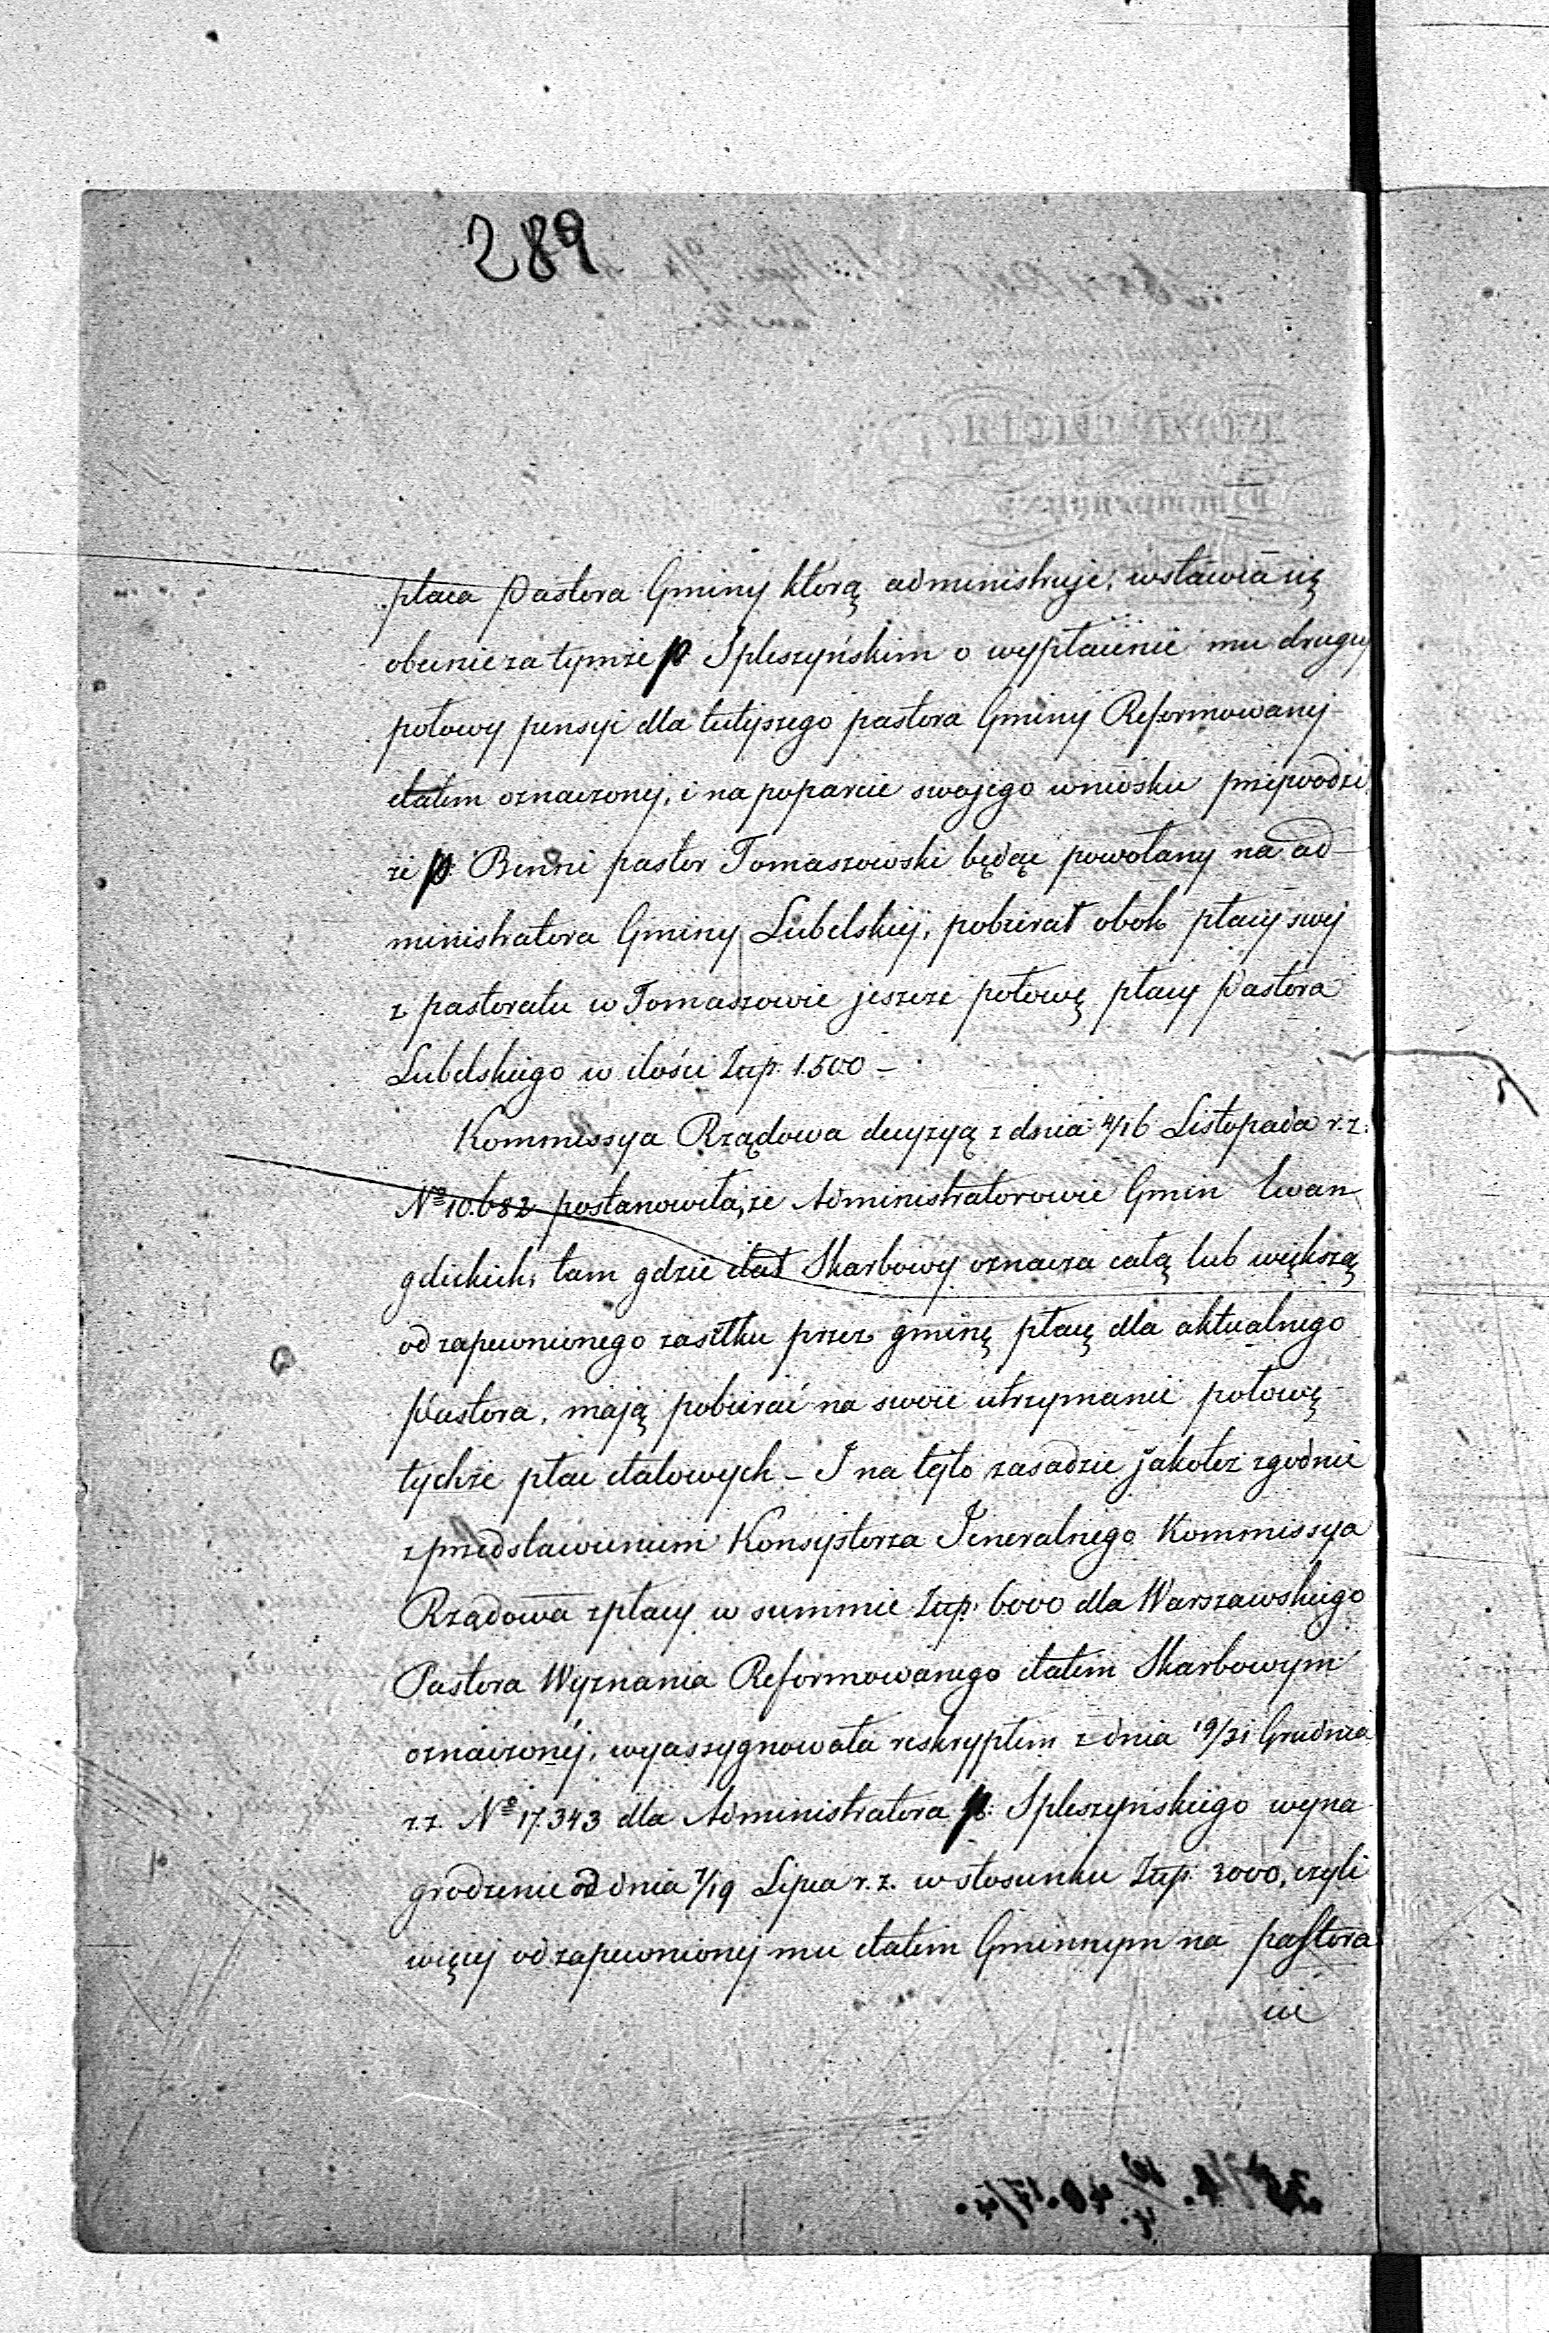 289
płaca Pastora Gminy którą administruje; wstawia się
obecnie za tymże p Spleszyńskim o wypłacenie mu drugiej
połowy pensyi dla tutejszego pastora Gminy Reformowanej
etatem oznaczonej, i na poparcie swojego wniosku przywodzi
że p Benni pastor Tomaszowski będąc powołany na ad
ministratora Gminy Lubelskiej, pobierał obok płacy swej
z pastoratu w Tomaszowie jeszcze połowę płacy Pastora
Lubelskiego w ilości Złp. 1.500 –
Kommissya Rządowa decyzyą z dnia 4/16 Listopada r.z.
No 10.682 postanowiła, że Administratorowie Gmin Ewan
gelickich, tam gdzie etat Skarbowy oznacza całą lub większą
od zapewnionego zasiłku przez gminę płacę dla aktualnego
Pastora, mają pobierać na swoie utrzymanie połowę
tychże płac etatowych – I na tejto zasadzie jakoteż zgodnie
z przedstawieniem Konsystorza Jeneralnego Kommissya
Rządowa z płacy w summie Złp. 6000 dla Warszawskiego
Pastora Wyznania Reformowanego etatem Skarbowym
oznaczonéj, wyassygnowała reskryptem z dnia 19/31 Grudnia
r.z. No 17.343 dla Administratora p. Spleszyńskiego wyna
grodzenie od dnia 7/19 Lipca r.z. w stosunku Złp. 3000, czyli
więcej od zapewnionej mu etatem Gminnym na pastora